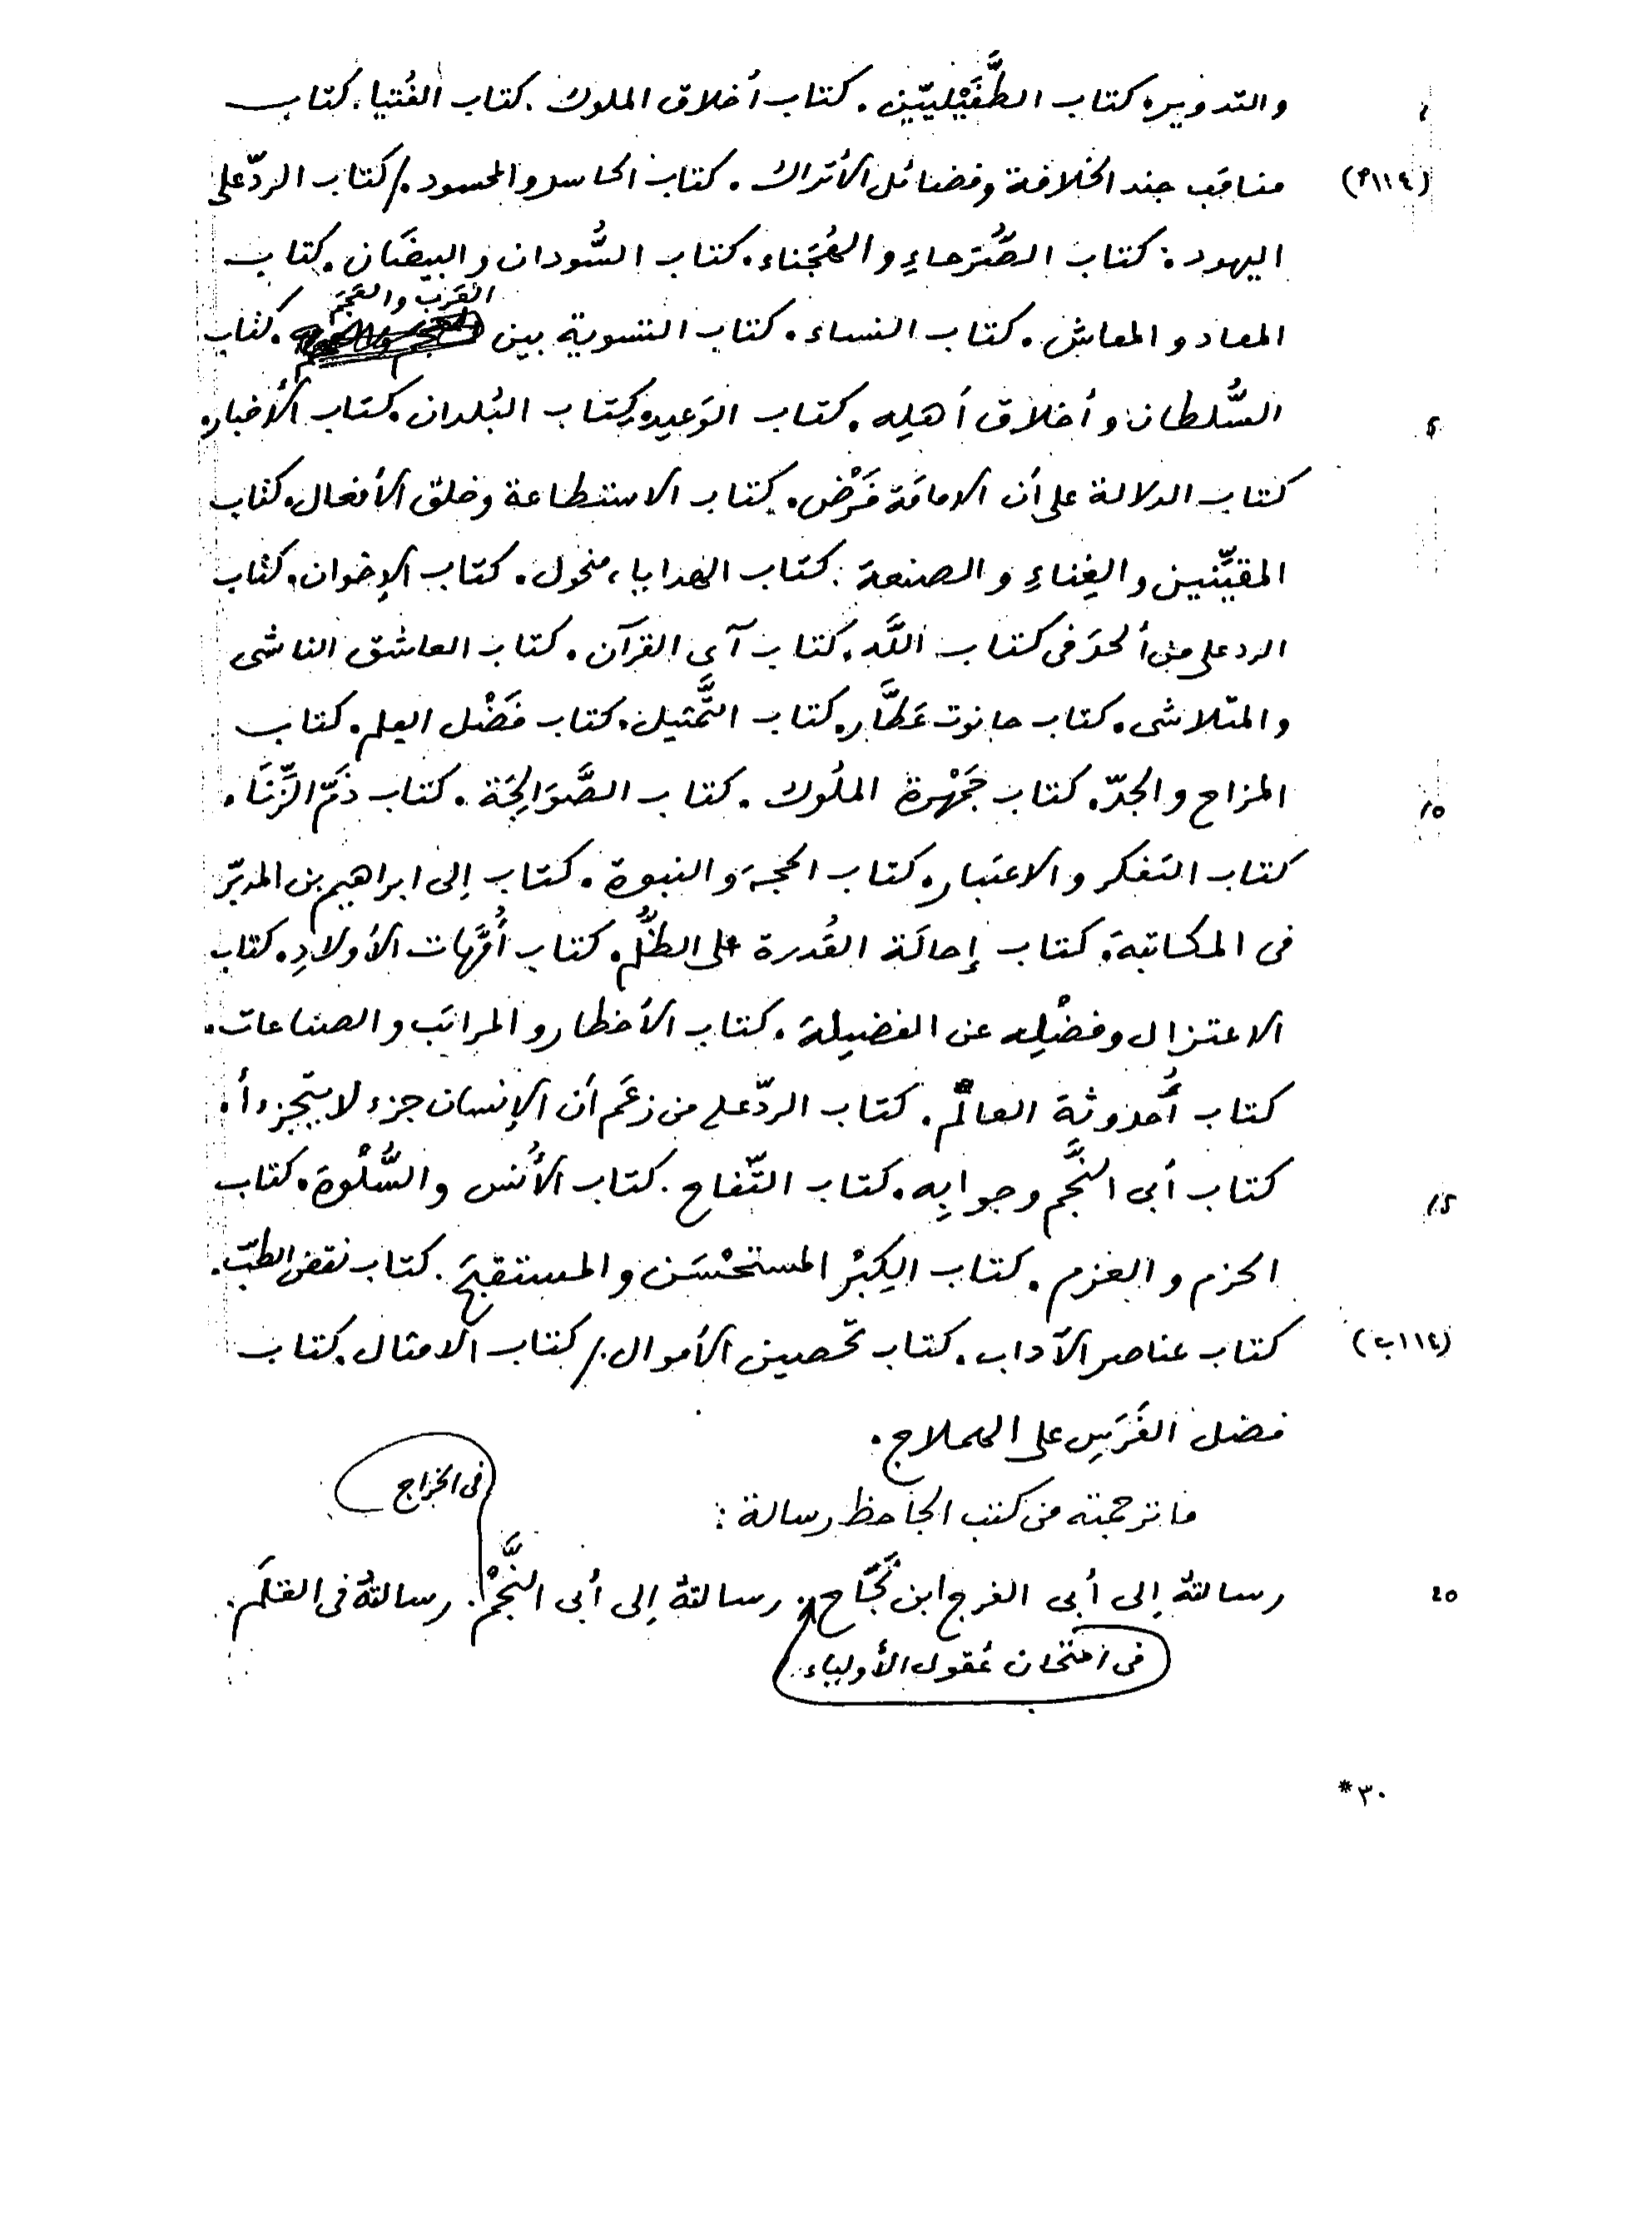 والتدوير. كتاب الطُّفَيْليّين. كتاب أخلاق الملوك. كتاب الفُتيا. كتاب
(١١٤م) مناقب جند الخلافة وفضائل الأتراك. كتاب الحاسد والمحسود. / كتاب الردّ على
اليهود. كتاب الصُّرَحاءِ والهُجَناء. كتاب السُّودان والبيضَان. كتاب
المعاد والمعاش. كتاب النساء. كتاب التسوية بين العَرَب والعَجَم. كتاب
٥ السُّلطان وأخلاق أهلِه. كتاب الوَعيد. كتاب البُلدان. كتاب الأخبار.
كتاب الدلالة على أن الامامَة فَرْض. كتاب الاستطاعة وخلق الأفعال. كتاب
المقيِّنين والغِناءِ والصنعة. كتاب الهدايا، منحول. كتاب الإخوان. كتاب
الرد على من ألحدَ فى كتاب اللَّه. كتاب آى القرآن. كتاب العاشق الناشى
والمتلاشى. كتاب حانوت عَطَّار. كتاب التَّمثيل. كتاب فَضْل العلم. كتاب
١٠ المزاح والجدّ. كتاب جَمْهرة الملُوك. كتاب الصَّوَالجَة. كتاب ذَمّ الزِّنَاء.
كتاب التفكر والاعتبار. كتاب الحجة والنبوة. كتاب إلى ابراهيم بن المدبّر
فى المكاتبة. كتاب إحالَة القُدرة على الظُّلم. كتاب أُمَّهات الأولادِ. كتاب
الاعتزال وفضْلِه عن الفضيلة. كتاب الأخطار والمراتب والصناعات.
كتاب أُحدوثة العالَم. كتاب الردّ على من زعَم أن الإنسان جزء لا يتجزءأ.
١٥ كتاب أبى النَّجم وجوابِه. كتاب التّفاح. كتاب الأُنس والسُّلْوة. كتاب
الحزم والعزم. كتاب الكِبْر المستحْسَن والمستقبحَ. كتاب نقض الطبّ.
(١١٤ب) كتاب عناصر الآداب. كتاب تحصين الأموال. / كتاب الامثال. كتاب
فضل الفَرَسِ على الهملاج.
ما ترجمته من كتب الجاحظ رسالة:
فى الخراج
٢٠ رسالتهُ إلى أبى الفرج ابن نَجَّاح. رسالتهُ إلى أبى النَّجْم. رسالتهُ فى القلَم.
فى امتحان عُقول الأولياء.
٣٠*